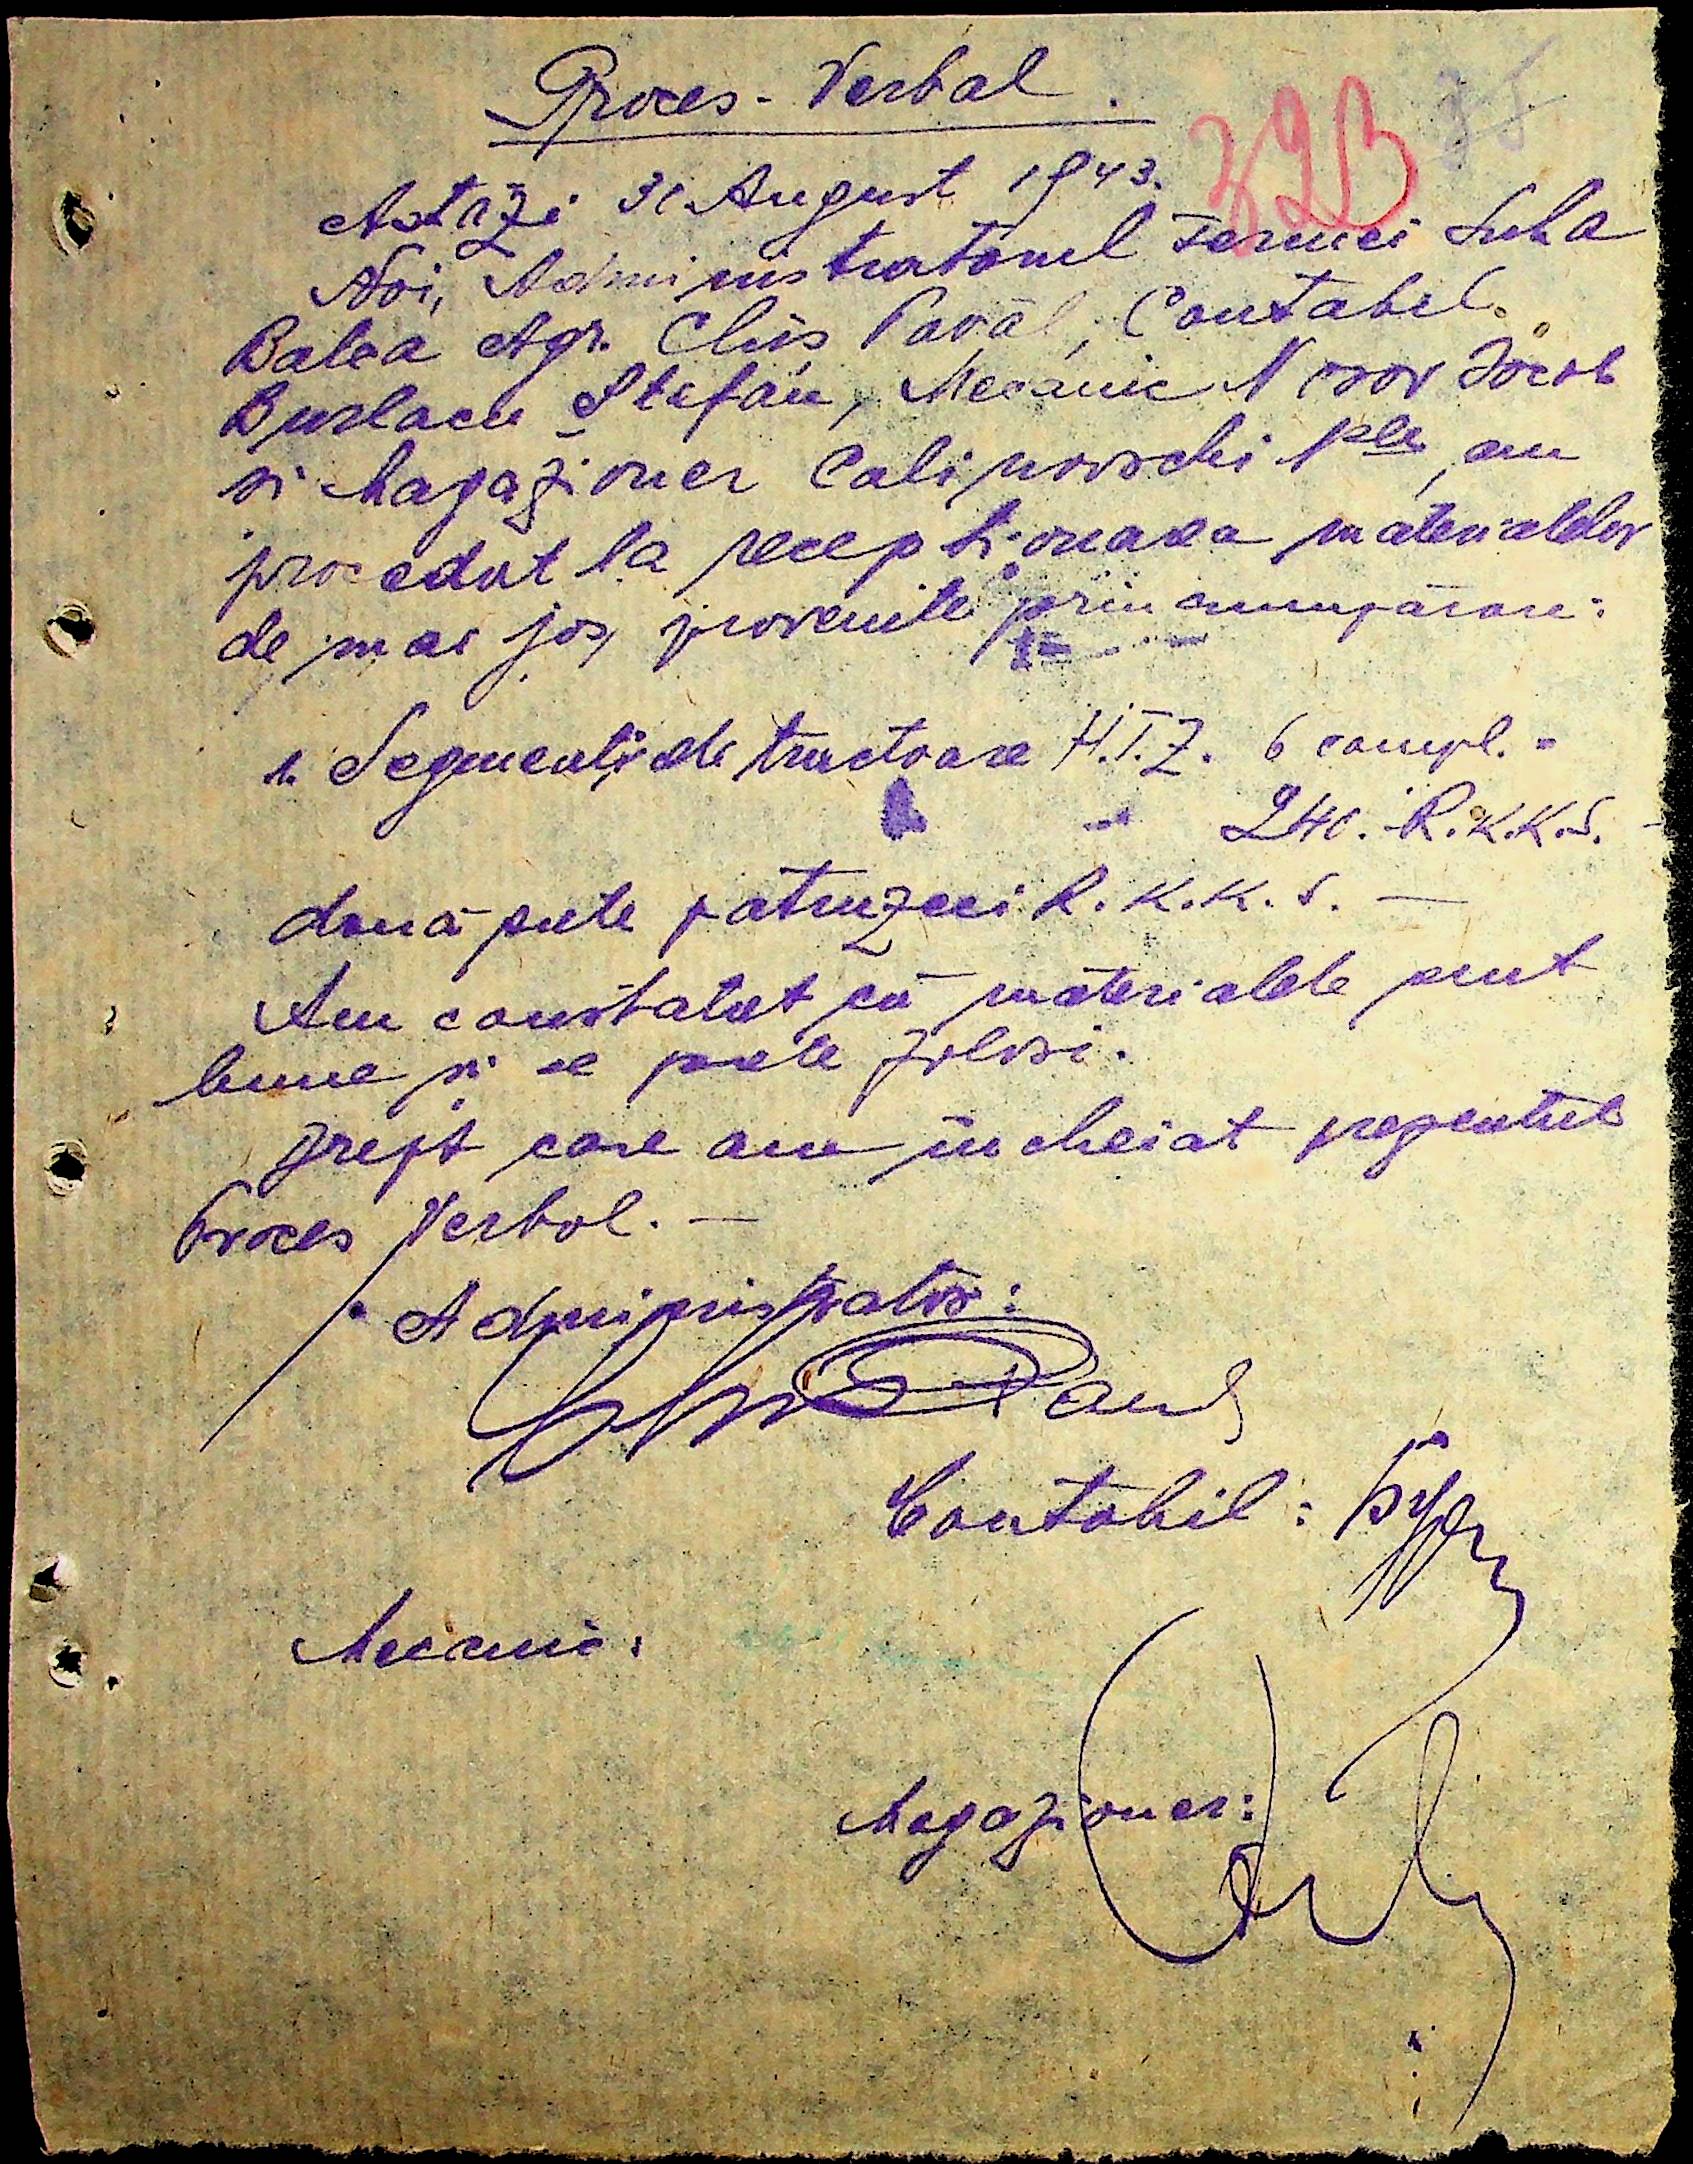 Proces-Verbal.
323
Astăzi 31 August 1943.
Noi, Administratorul Fermei Suha
Balca Agr. Chis Paval, Contabil
Burlacu Stefan, Mecanic Iacob
si Magazioner Calinovschi am
procedat la receptionarea materialelor
de mai jos, provenite prin cumpărare:
1. Segmenti de tractoare H.T.Z. 6 compl. =
240. R.K.K.S. -
două sute patruzeci R.K.K.S. —
Am constatat că materialele sunt
bune si se pote folosi.
Drept care am încheiat prezentul
Proces Verbal. —
Administrator:
Contabil:
Mecanic:
Magazioner: